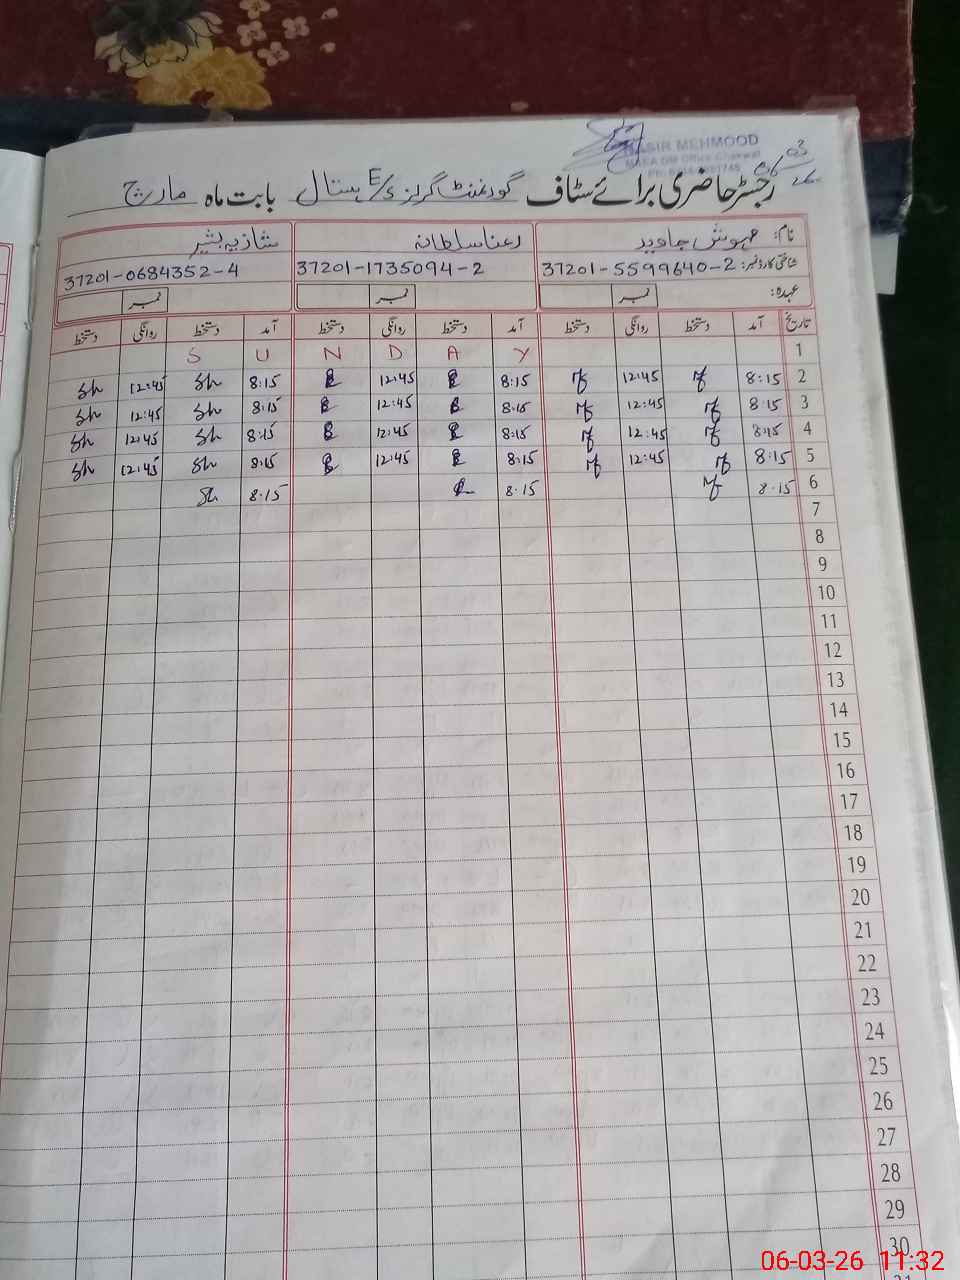 NASIR MEHMOOD
06/03/26
رجسٹر حاضری برائے سٹاف گورنمنٹ گرلز E/S ہستال بابت ماہ مارچ
نام: مہوش جاوید رعنا سلطانہ شازیہ بشیر
شناختی کارڈ نمبر: 37201-5599640-2 37201-1735094-2 37201-0684352-4
عہدہ: نمبر نمبر نمبر
تاریخ آمد دستخط روانگی دستخط آمد دستخط روانگی دستخط آمد دستخط روانگی دستخط
S U N D A Y 1
Sh 12:45 Sh 8:15 12:45 8:15 12:45 8:15 2
Sh 12:45 Sh 8:15 12:45 8:15 12:45 8:15 3
Sh 12:45 Sh 8:15 12:45 8:15 12:45 8:15 4
Sh 12:45 Sh 8:15 12:45 8:15 12:45 8:15 5
Sh 8:15 8:15 8:15 6
7
8
9
10
11
12
13
14
15
16
17
18
19
20
21
22
23
24
25
26
27
28
29
30
06-03-26 11:32